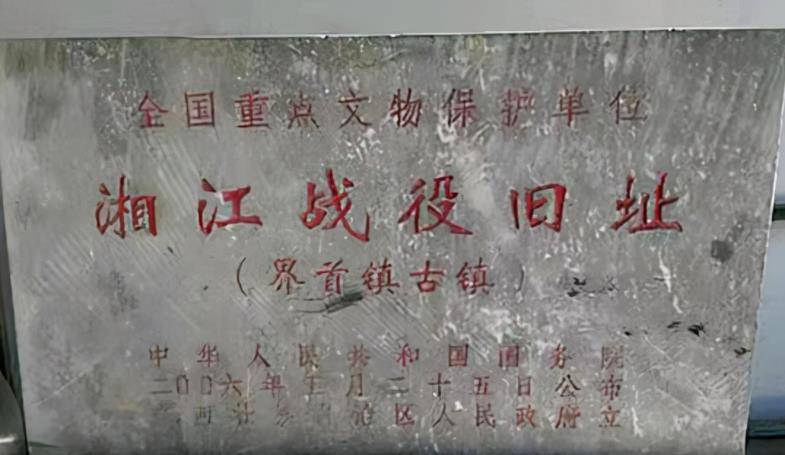 全国重点文物保护单位
湘江战役旧址
(界首镇古镇)
中华人民共和国国务院
二00六年五月二十五日公布
西壮族自治区人民政府立